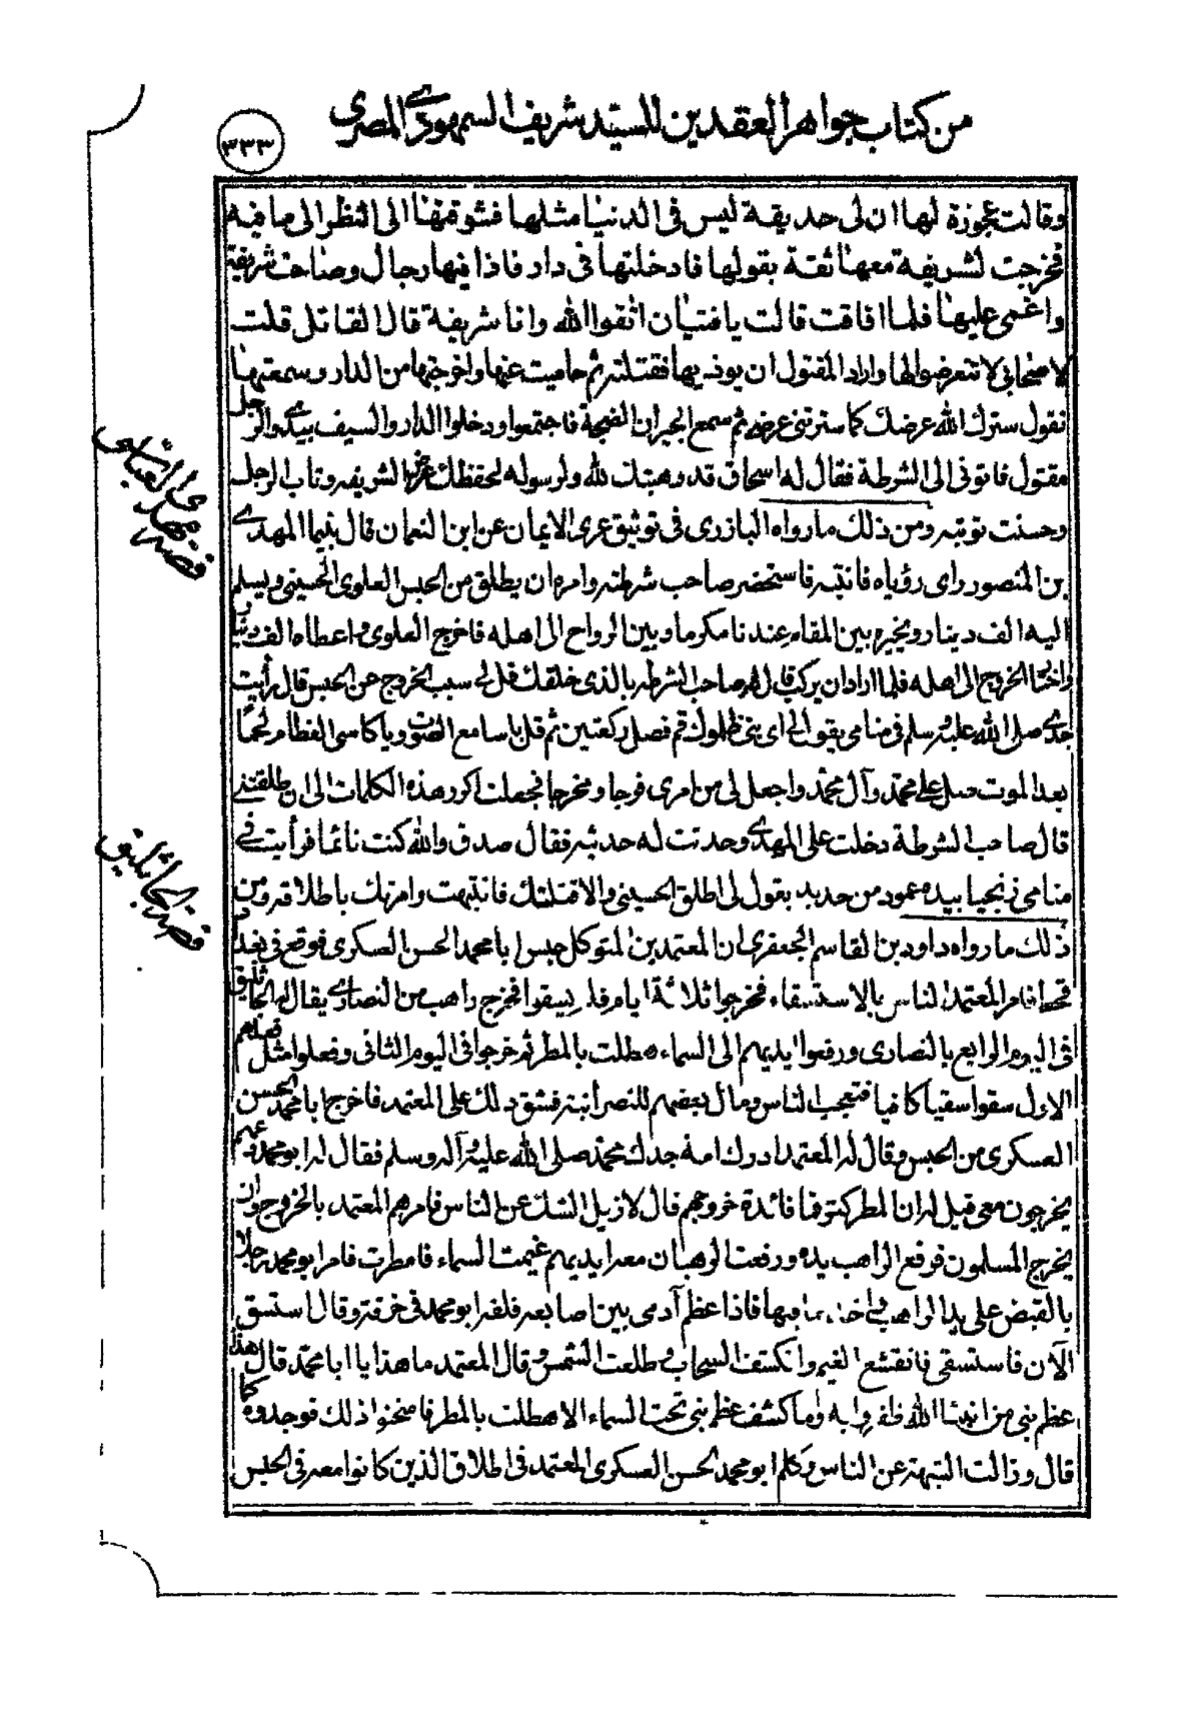 من كتاب جواهر العقدين للسيد شريف السمهودي المصري
٣٣٣
وقالت عجوزة لها ان لى حديقة ليس فى الدنيا مثلها فشوقتها الى النظر الى ما فيه
فخرجت لشريفة معها ثقة بقولها فادخلتها فى دار فاذا فيها رجال وصاحت شريفة
واغمى عليها فلما افاقت قالت يا فتيان اتقوا الله وانا شريفة قال القاتل قلت
لاصحابى لا تتعرضوا لها واراد المقتول ان يوذيها فقتلته ثم حاميت عنها واخرجتها من الدار وسمعتها
تقول سترك الله عرضك كما سترتنى عرضى ثم سمع الجيران الضجة فاجتمعوا ودخلوا الدار والسيف بيدى والرجل
مقتول فاتونى الى الشرطة فقال له اسحاق قد وهبتك لله ولرسوله لحفظك عرض الشريفه وتاب الرجل
وحسنت توبته ومن ذلك ما رواه البازرى فى توثيق عرى الايمان عن ابن النعمان قال بينما المهدى
بن المنصور راى رؤياه فانتبه فاستحضر صاحب شرطته وامره ان يطلق من الحبس العلوى الحسينى ويسلم
اليه الف دينار ويخيره بين المقام عندنا مكرما وبين الرواح الى اهله فاخرج العلوى واعطاه الف دينار
واختار الخروج الى اهله فلما اراد ان يركب قال له صاحب الشرطه بالذى خلقك قل لى سبب الخروج عن الحبس قال رأيت
جدى صلى الله عليه وسلم فى منامى يقول لى اى بنى ظلموك قم فصل ركعتين ثم قل يا سامع الصوت ويا كاسى العظام لحما
بعد الموت صل على محمد وآل محمد واجعل لى من امرى فرجا ومخرجا فجعلت اكرر هذه الكلمات الى ان طلقتنى
قال صاحب الشرطة دخلت على المهدى وحدثت له حديثه فقال صدق والله كنت نائما فرأيت فى
منامى زنجيا بيده عمود من حديد يقول لى اطلق الحسينى والا قتلتك فانتبهت وامرتك باطلاقه ومن
ذلك ما رواه داود بن القاسم الجعفرى ان المعتمد بن المتوكل حبس ابا محمد الحسن العسكرى فوقع فى بغداد
قحط فامر المعتمد الناس بالاستسقاء فخرجوا ثلاثة ايام فلم يسقوا فخرج راهب من النصارى يقال له الجاثليق
فى اليوم الرابع بالنصارى ورفعوا ايديهم الى السماء هطلت بالمطر ثم خرجوا فى اليوم الثانى وفعلوا مثل فعلهم
الاول سقوا سقيا كافيا فتعجب الناس ومال بعضهم للنصرانية فشق ذلك على المعتمد فاخرج ابا محمد الحسن
العسكرى من الحبس وقال له المعتمد ادرك امة جدك محمد صلى الله عليه وآله وسلم فقال له ابو محمد دعهم
يخرجون معى قيل له ان المطر كثر فما فائدة خروجهم قال لازيل الشك عن الناس فامرهم المعتمد بالخروج وان
يخرج المسلمون فرفع الراهب يده ورفعت الرهبان معه ايديهم غيمت السماء فامطرت فامر ابو محمد رجلا
بالقبض على يد الراهب واخذ ما فيها فاذا عظم آدمى بين اصابعه فلفه ابو محمد فى خرقة وقال استسق
الآن فاستسقى فانقشع الغيم وانكشف السحاب وطلعت الشمس وقال المعتمد ما هذا يا ابا محمد قال هذا
عظم نبى من انبيآء الله ظفروا به وما كشف عظم نبى تحت السماء الا هطلت بالمطر فامتحنوا ذلك فوجدوه كما
قال وزالت الشبهة عن الناس وكلم ابو محمد الحسن العسكرى المعتمد فى اطلاق الذين كانوا معه فى الحبس
قصة مهدى العباسى
قصة الجاثليق